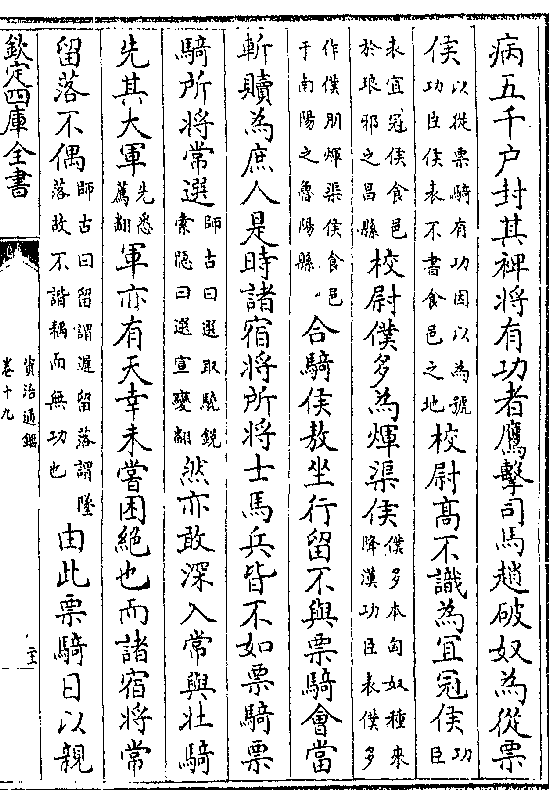 病五千户封其裨將有功者鷹擊司馬趙破奴為從票
侯以從票騎有功因以為號功臣侯表不書食邑之地校尉高不識為宜冠侯功臣
表宜冠侯食邑於琅邪之昌縣校尉僕多為煇渠侯僕多本匈奴種來降漢功臣表僕多
作僕朋煇渠侯食邑于南陽之魯陽縣合騎侯敖坐行留不與票騎會當
斬贖為庶人是時諸宿將所將士馬兵皆不如票騎票
騎所將常選師古曰選取驍銳索隱曰選宣變翻然亦敢深入常與壯騎
先其大軍先悉薦翻軍亦有天幸未嘗困絶也而諸宿將常
留落不偶師古曰留謂遲留落謂墜落故不諧耦而無功也由此票騎日以親
欽定四庫全書
資治通鑑
卷十九